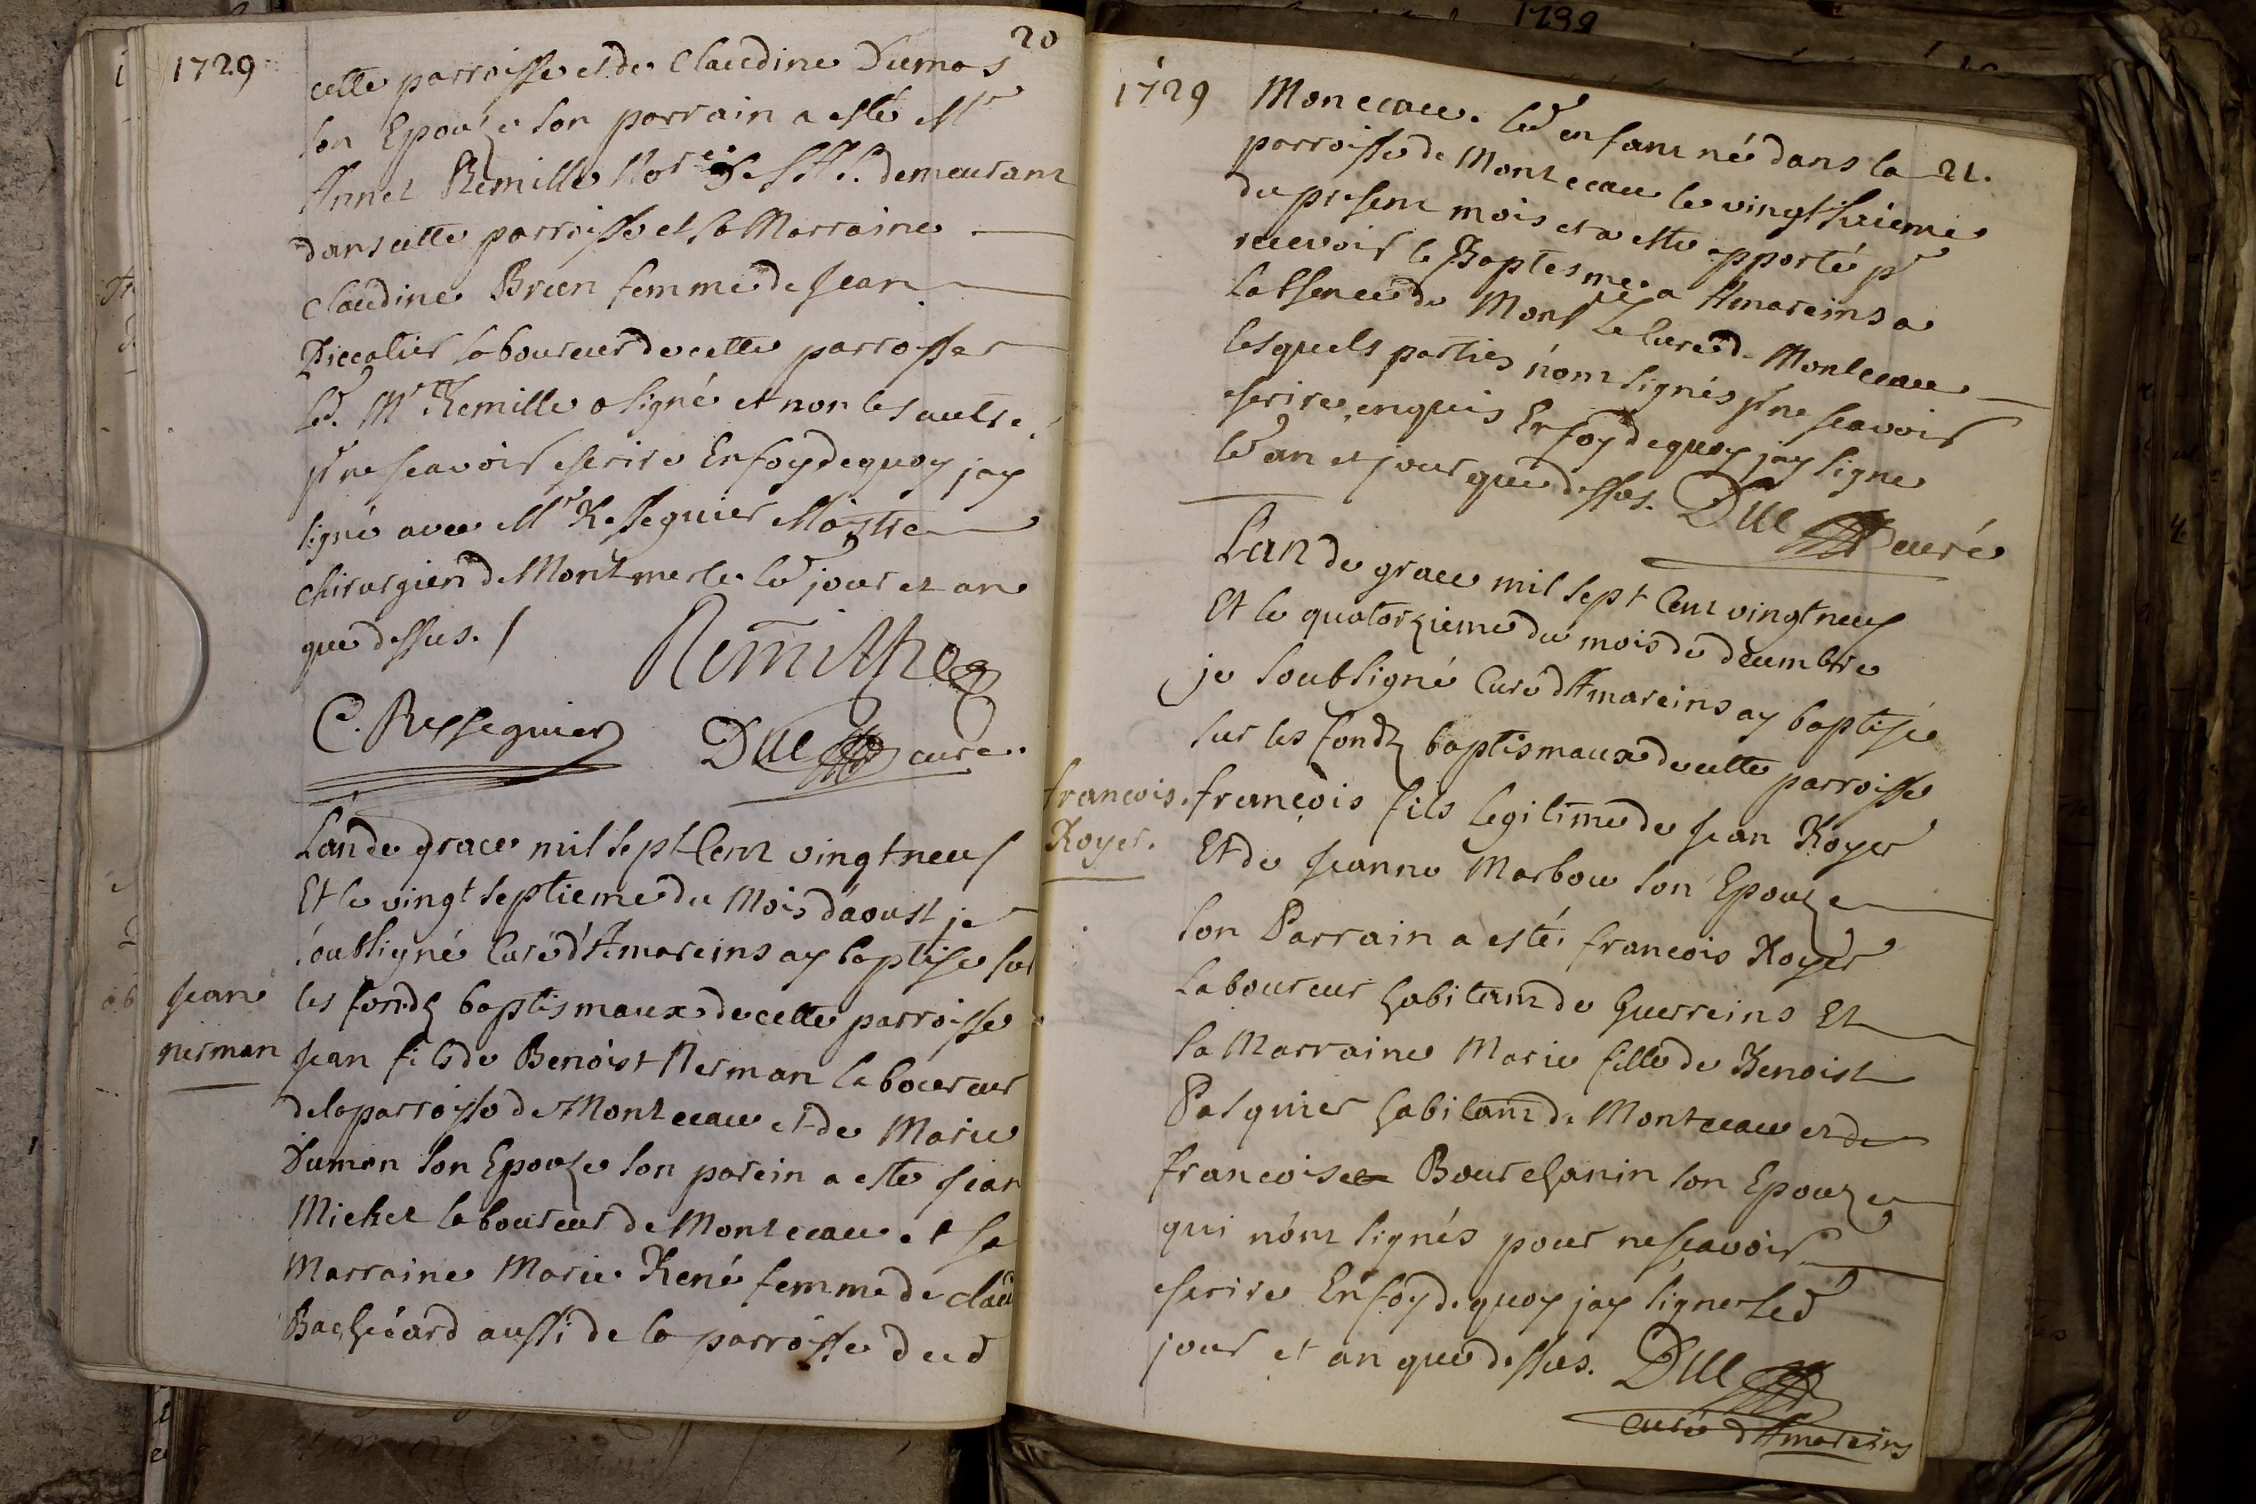 20
1729
cette parroisse et de Claudine Dumas
son Epouze son parrain a esté Mr
Annet Remille Nore demeurant
dans cette parroisse et sa Marraine
Claudine Brun femme de Jean
laboureur de cette parroisse
led. Mr Remille a signé et non les autre
pr ne scavoir escrire En foy de quoy jay
signé avec Mr Resseguier Maistre
chirurgien de Montmerle led jour et an
que dessus. /
Remilhe
C. Resseguier Duc curé.
Lan de grace mil sept Cent vingt neuf
Et le vingt septieme du Mois d'aoust je
soubsigné Curé d'Amareins ay baptise sur
les fondz baptismaux de cette parroisse
Jean
nerman
Jean fils de Benoist Nerman laboureur
de la parroisse de Montceau et de Marie
Dumon son Epouze son parein a este Jean
Michel laboureur de Montceau et sa
Marraine Marie René femme de clau
aussi de la parroisse dud
1739
1729
Monceau. led enfant né dans la 21.
parroisse de Montceau le vingt sixieme
du present mois et a este apporté pr
recevoir le Baptesme a Amareins a
labsence de Monsr le Curé de Montceau
lesquels parties n'ont signés pr ne scavoir
escrire enquis En foy de quoy jay signe
led an et jour que dessus. Duc curé
Lan de grace mil sept Cent vingt neuf
Et le quatorzieme du mois de decembre
je soubsigné Curé d'Amareins ay baptisé
sur les fondz baptismaux de cette parroisse
francois.
Royer.
françois fils legitime de Jean Royer
Et de Jeanne Marbou son Epouze
son Parrain a esté francois Royer
laboureur habitant de Guerreins Et
sa Marraine Marie fille de Benoist
Pasquier habitant de Montceau et de
francoise Bourchanin son Epouze
qui n'ont signés pour ne scavoir
escrire En foy de quoy jay signer led
jour et an que dessus. Duc
curé d'Amareins